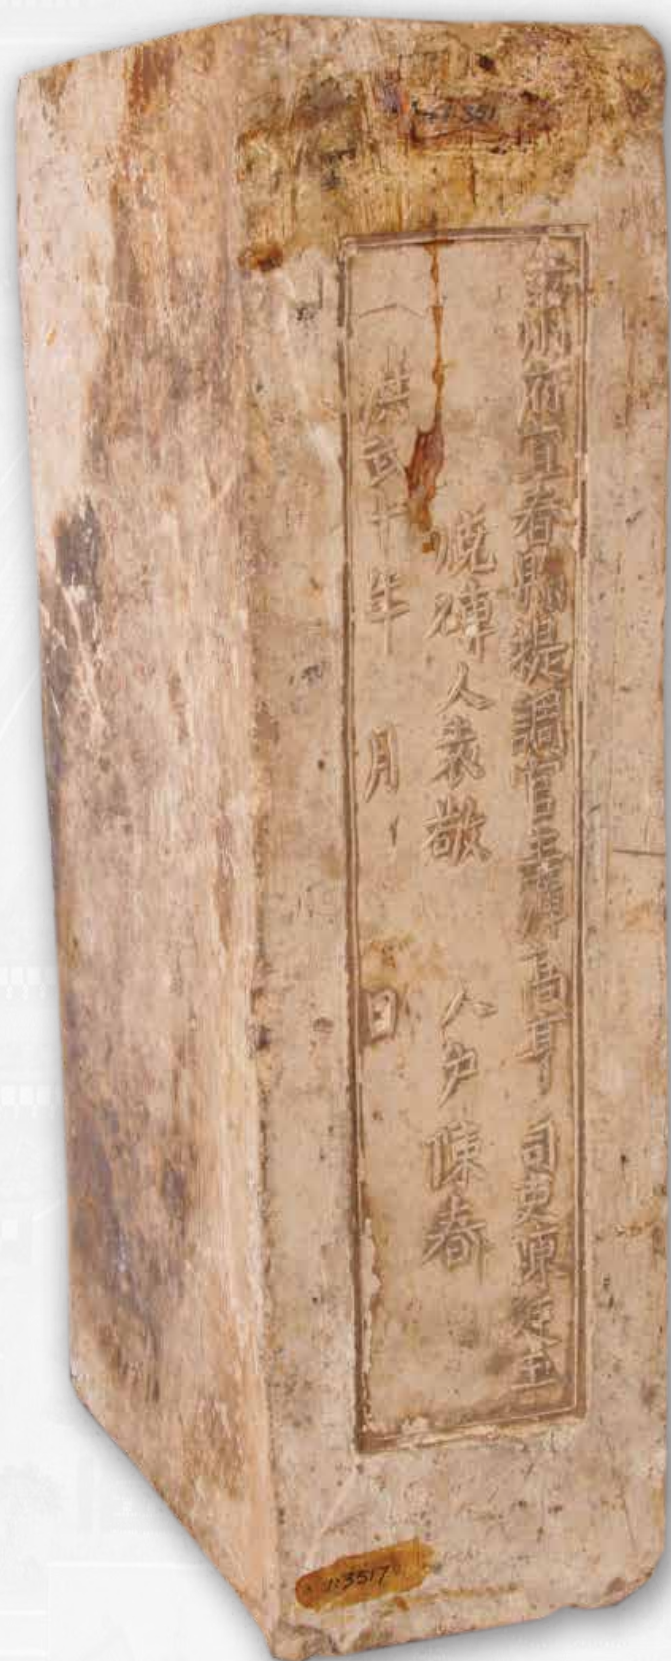 袁州府宜春縣提調官主簿高亨 司吏陳廷玉
燒磚人袁敬 人户陳春
洪武十年 月 日
1:3517